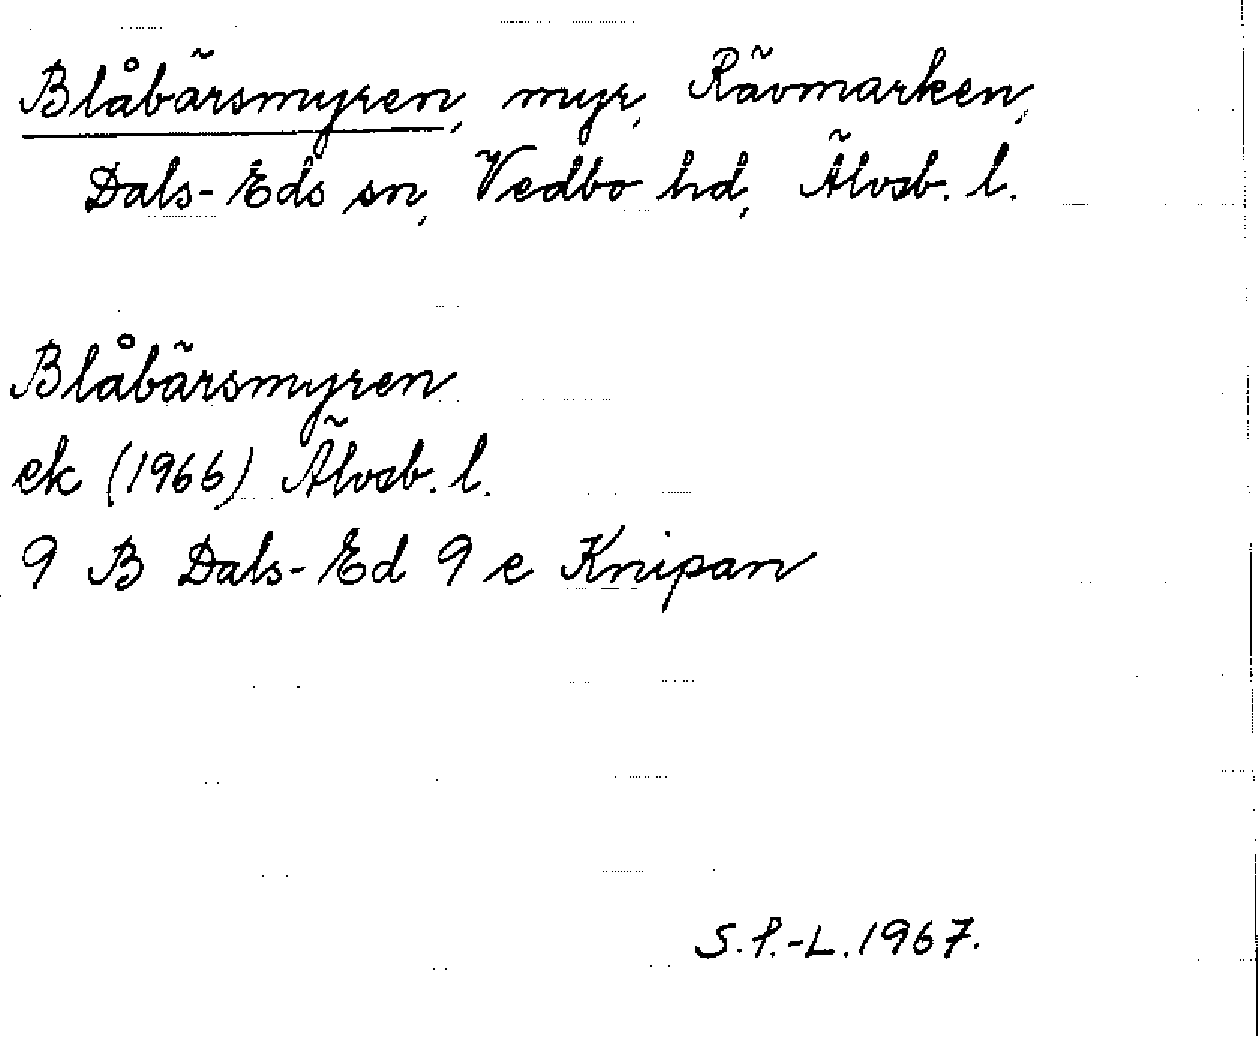 Blåbärsmyren, myr, Rävmarken,
Dals-Eds sn, Vedbo hd, Älvsb. l.
Blåbärsmyren
ek (1966) Älvsb. l.
9 B Dals-Ed 9 e Knipan
S.P.-L. 1967.